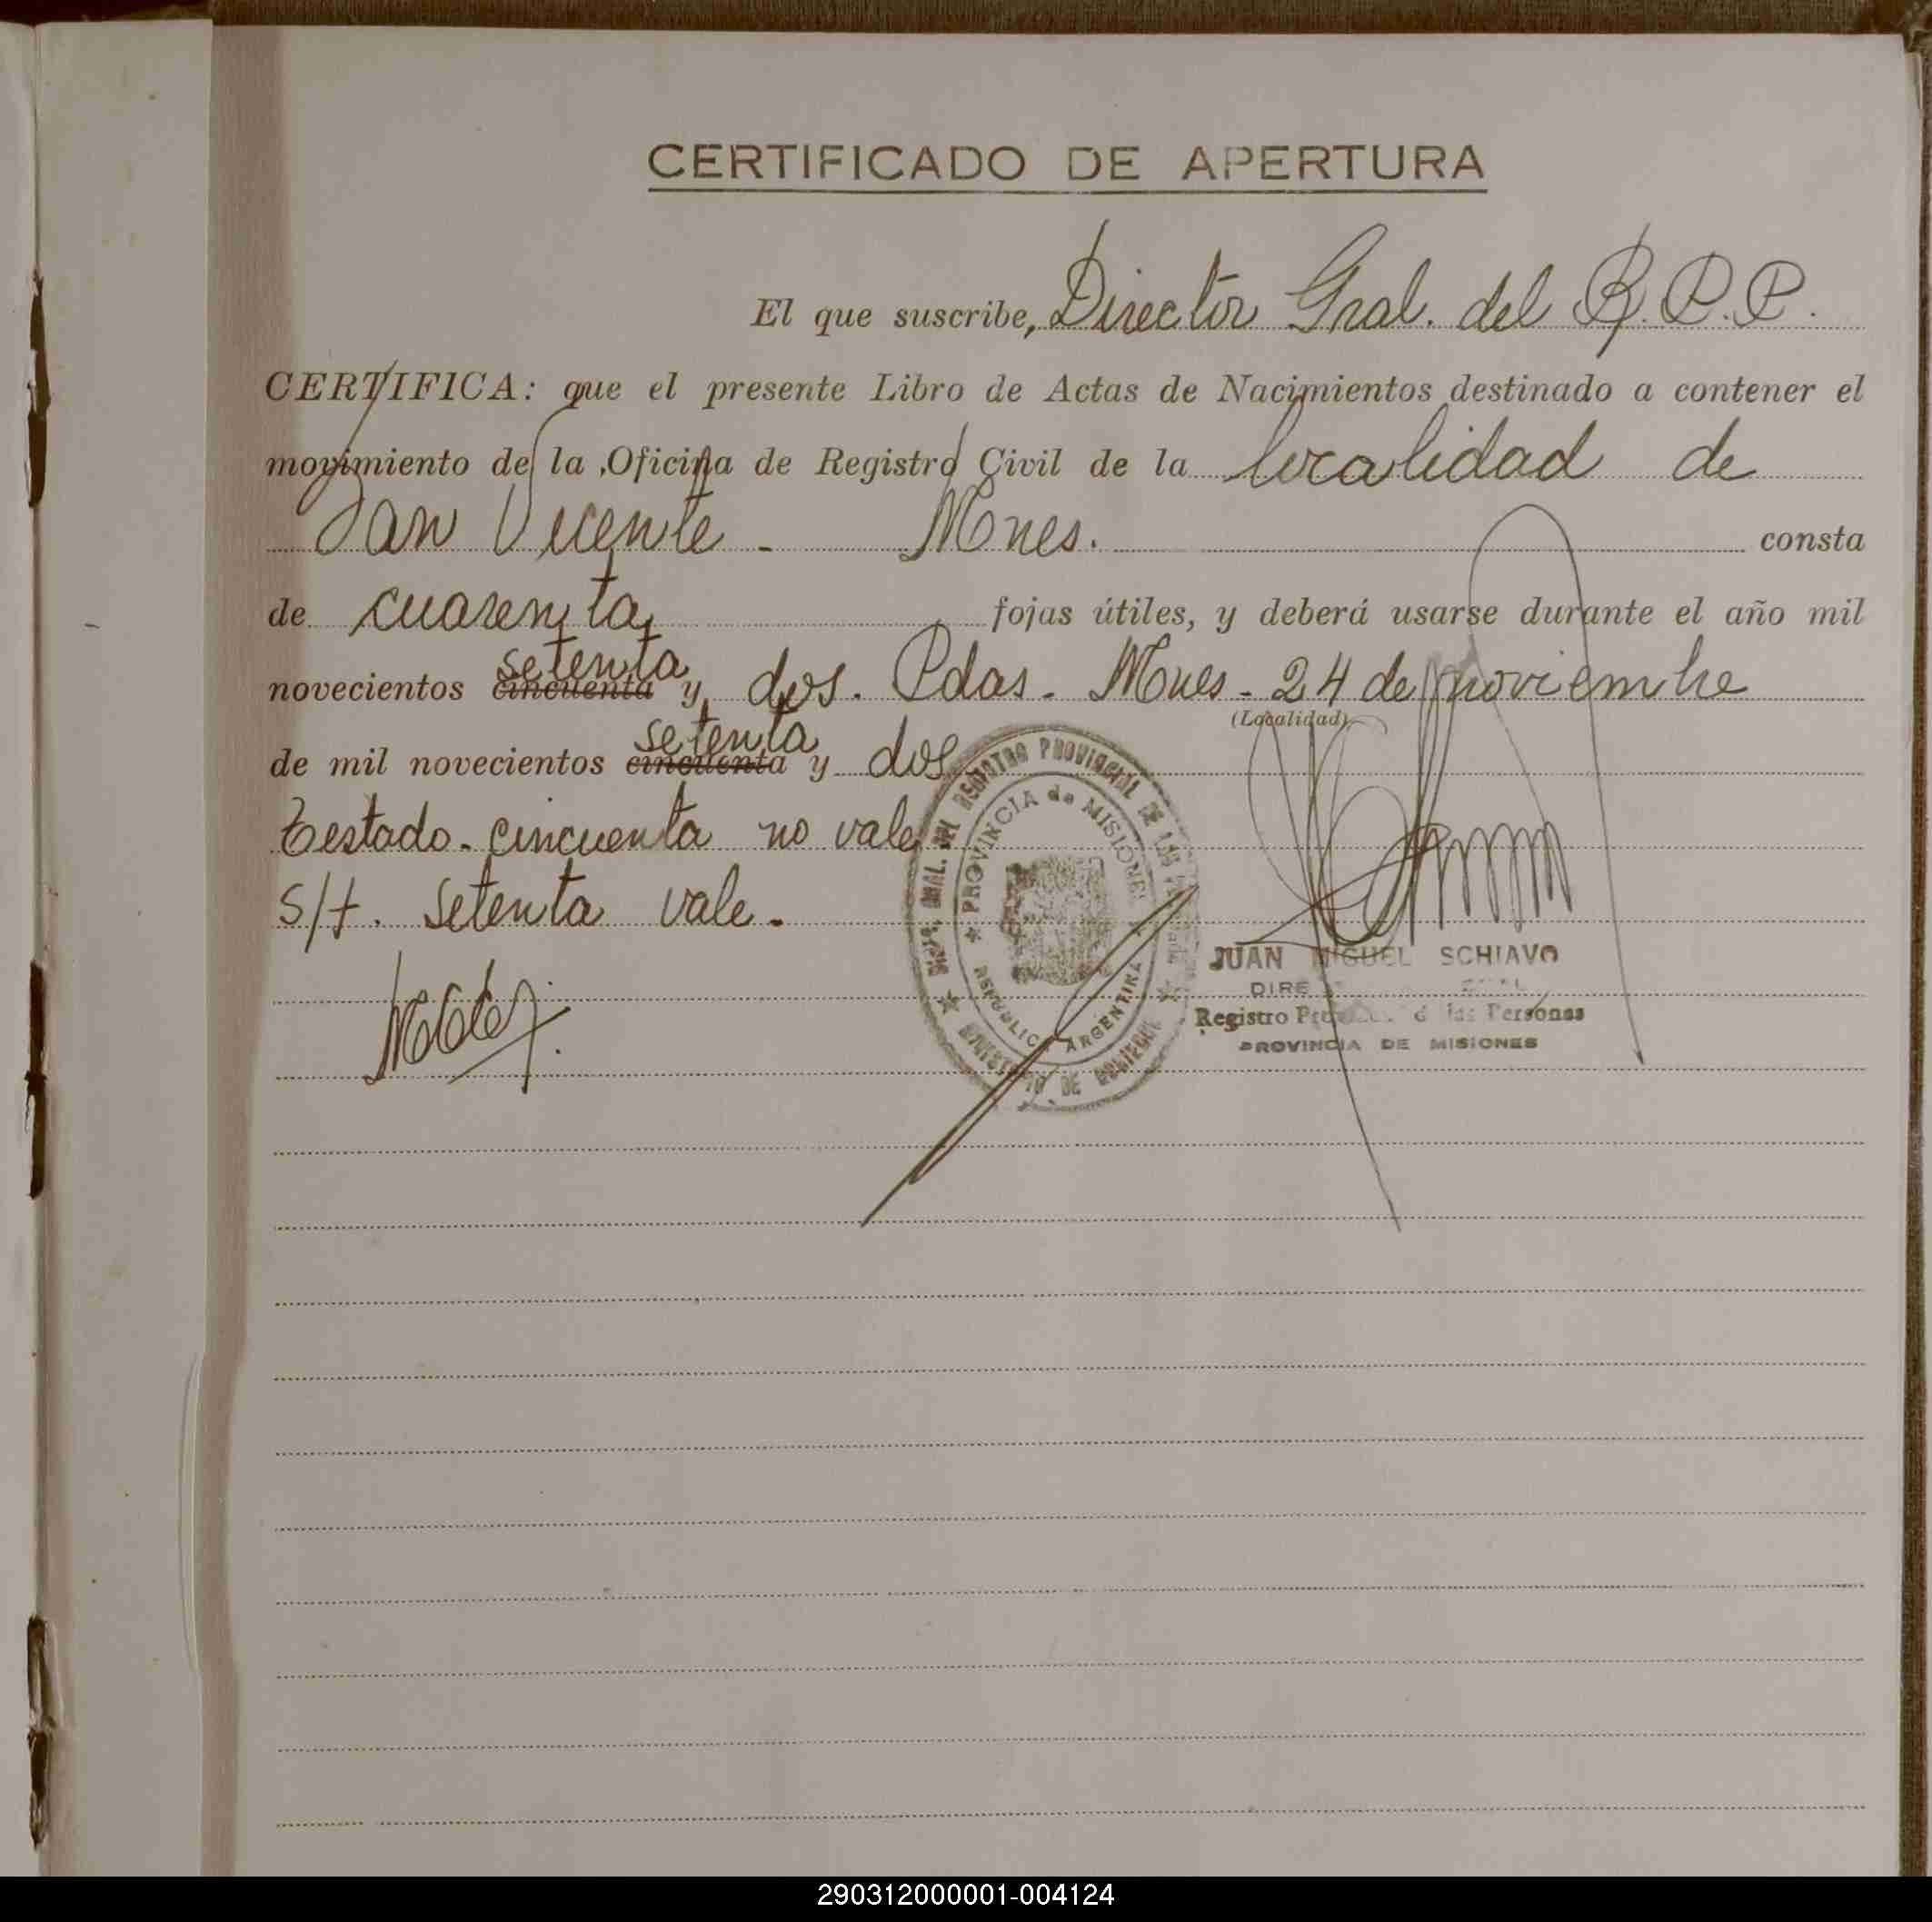 CERTIFICADO DE APERTURA
El que suscribe, Director Gral. del R.P.P.
CERTIFICA: que el presente Libro de Actas de Nacimientos destinado a contener el
movimiento de la Oficina de Registro Civil de la localidad de
San Vicente - Mnes. consta
de cuarenta fojas útiles, y deberá usarse durante el año mil
setenta
novecientos cincuenta y dos. Pdas. Mnes - 24 de noviembre
(Localidad)
setenta
de mil novecientos cincuenta y dos
Testado - cincuenta no vale
s/t. setenta vale.
GRAL. DEL REGISTRO PROVINCIAL DE LAS
PROVINCIA de MISIONES
REPUBLICA ARGENTINA
MINISTERIO DE GOBIERNO
JUAN MIGUEL SCHIAVO
Registro de las Personas
PROVINCIA DE MISIONES
290312000001-004124